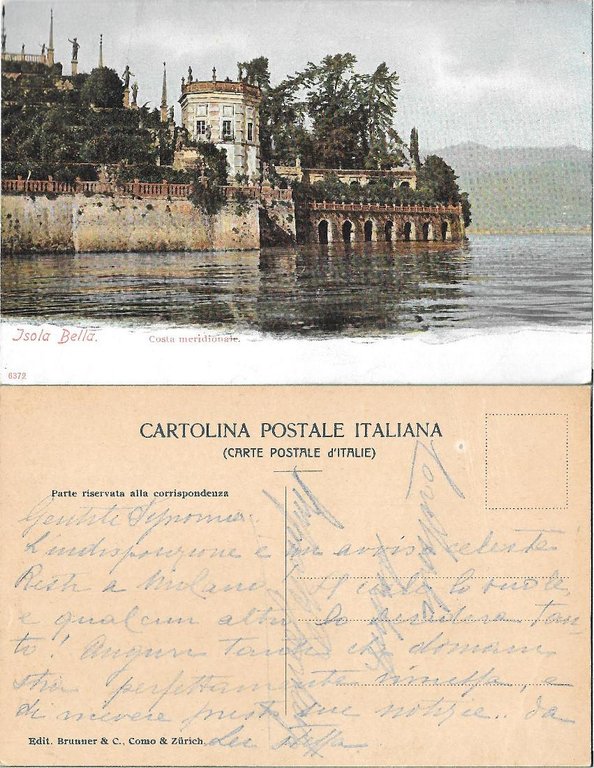 Isola Bella.
Costa meridionale.
6372
CARTOLINA POSTALE ITALIANA
(CARTE POSTALE d'ITALIE)
Parte riservata alla corrispondenza
Gentile Signorina
L'indisposizione è un avviso celeste
Resti a Milano. Il cielo lo vuole
e qualcun altro lo desidera tan-
to! Auguri tanti che domani
stia perfettamente rimessa, e
di ricevere presto sue notizie.. da
Lei stessa.
Edit. Brunner & C., Como & Zürich.